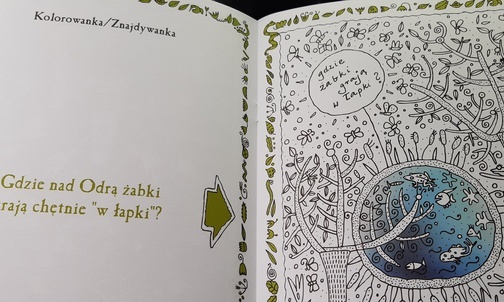 Kolorowanka/Znajdywanka
Gdzie nad Odrą żabki
rają chętnie "w łapki"?
gdzie
żabki
grają
w łapki?